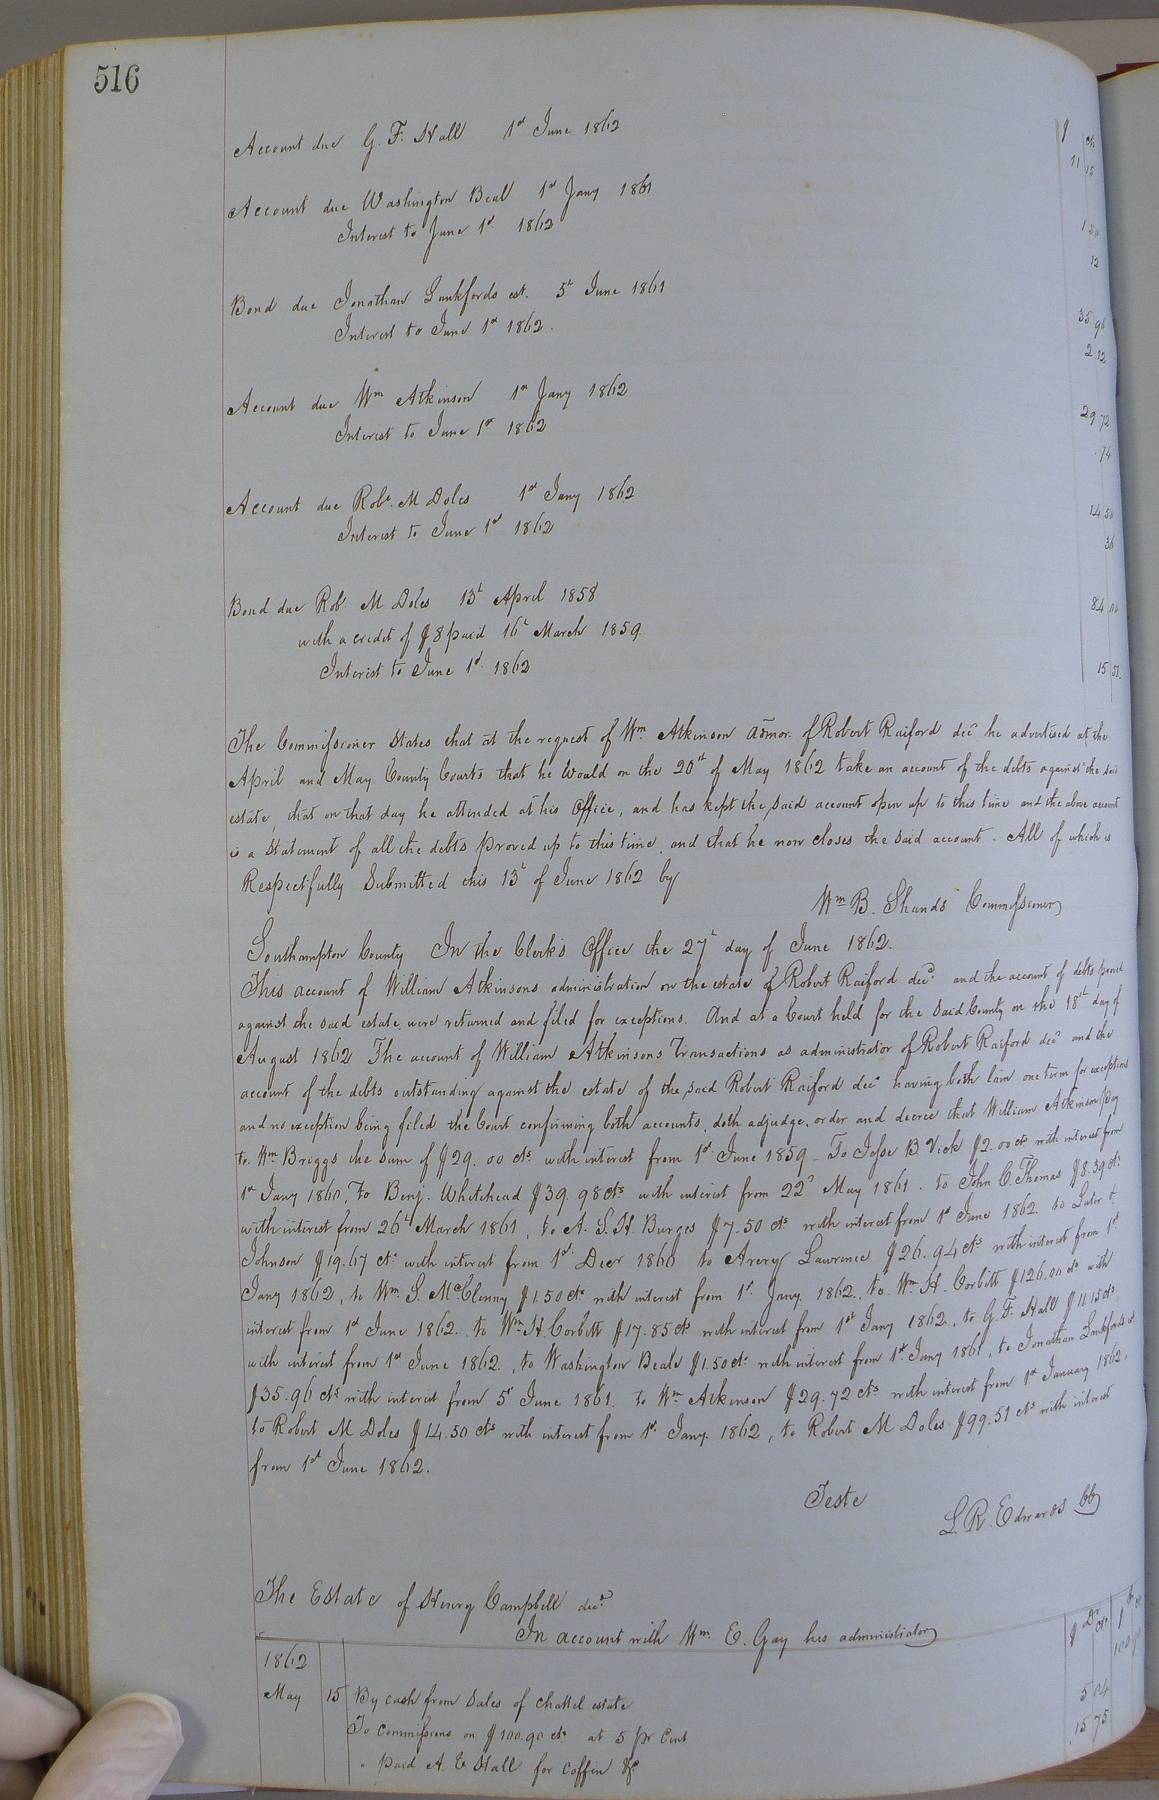 516
$ cts
Account due G. F. Hall 1st June 1862 11 15
Account due Washington Beal 1st Jany 1861 1 50
Interest to June 1st 1862 12
Bond due Jonathan Lankfords est. 5t June 1861 35 96
Interest to June 1st 1862. 2 12
Account due Wm Atkinson 1st Jany 1862 29 72
Interest to June 1st 1862 74
Account due Robt. M Doles 1st Jany 1862 14 50
Interest to June 1st 1862 36
Bond due Rob. M Doles 13t April 1858 84 00
with a credit of $8 paid 16t March 1859
Interest to June 1st 1862 15 51.
The Commissioner States that at the request of Wm. Atkinson admor. of Robert Raiford decd he advertised at the
April and May County Courts that he would on the 20th of May 1862 take an account of the debts against the said
estate, that on that day he attended at his Office, and has kept the said account open up to this time and the above account
is a Statement of all the debts proved up to this time, and that he now closes the said account. All of which is
Respectfully Submitted this 13t of June 1862 by
Wm B. Shands Commissioner
Southampton County In the Clerk's Office the 27t day of June 1862.
This account of William Atkinsons administration on the estate of Robert Raiford decd. and the account of debts proved
against the said estate, were returned and filed for exceptions. And at a Court held for the said County on the 18th day of
August 1862 The account of William Atkinsons Transactions as administrator of Robert Raiford decd and the
account of the debts outstanding against the estate of the said Robert Raiford decd having both lain one term for exceptions
and no exception being filed the Court confirming both accounts, doth adjudge, order and decree that William Atkinson pay
to Wm Briggs the sum of $29.00 cts with interest from 1st June 1859 - To Jesse B. Vick $2.00 cts with interest from
1st Jany 1860, To Benj. Whitehead $39.98 cts with interest from 22d May 1861. to John C. Thomas $8.39 cts
with interest from 26t March 1861, to A. S. H. Burges $7.50 cts with interest from 1st June 1862 to &
Johnson $19.67 cts with interest from 1st Decr 1860 to Avery Lawrence $26.94 cts with interest from 1st
Jany 1862, to Wm. S. McClenny $1.50 cts with interest from 1st Jany. 1862, to Wm H. Corbitt $126.00 cts with
interest from 1st June 1862. to Wm H Corbitt $17.85 cts with interest from 1st Jany 1862, to G. F. Hall $11.15 cts
with interest from 1st June 1862, to Washington Beale $1.50 cts with interest from 1st Jany 1861, to Jonathan Lankfords est
$35.96 cts with interest from 5t June 1861. to Wm Atkinson $29.72 cts with interest from 1st January 1862,
to Robert M Doles $14.50 cts with interest from 1st Jany. 1862, to Robert M Doles $99.51 cts with interest
from 1st June 1862.
Teste
L. R. Edwards CC
The Estate of Henry Campbell decd
In account with Wm. E. Gay his administrator
$ Dr cts $ Cr cts
1862
May 15 By cash from Sales of chattel estate 100 90
To commissions on $100.90 cts at 5 pr Cent 5 04
" paid A. E Hall for coffin &c 15 75